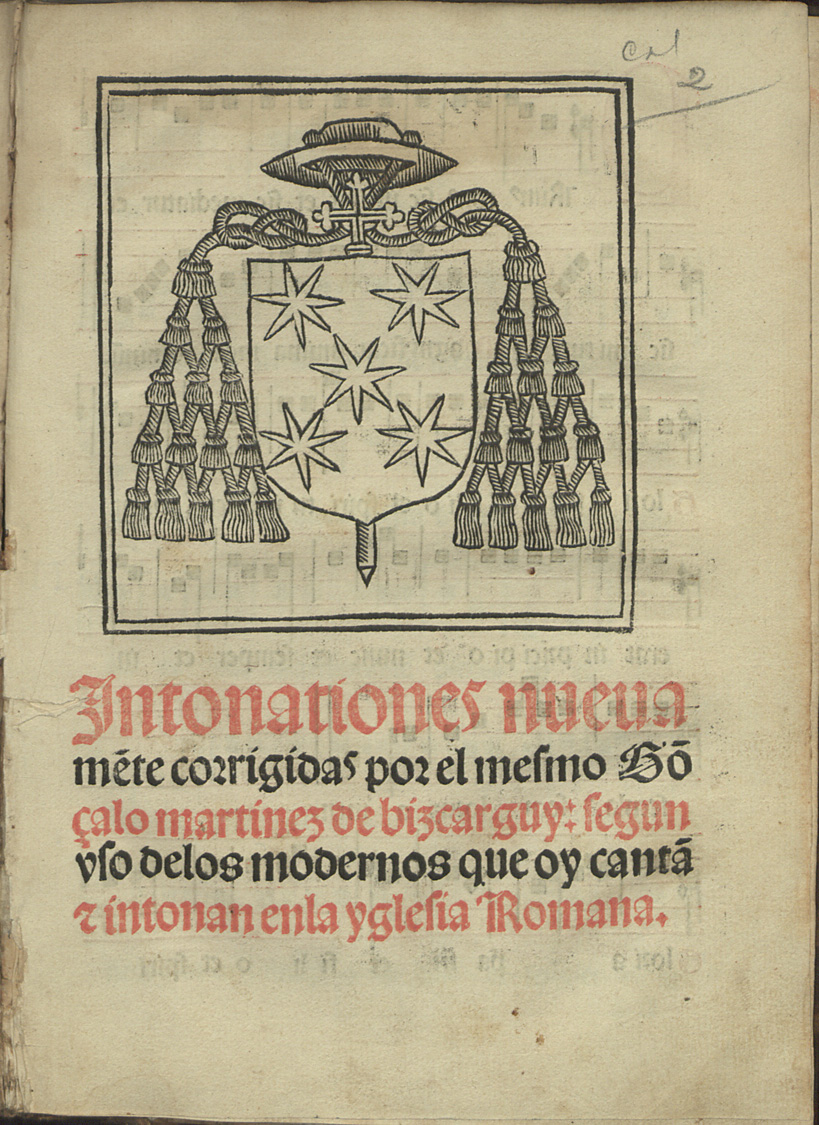 2
Intonationes nueua
mẽte corrigidas por el mesmo Gõ
çalo martinez de bizcarguy: segun
vso delos modernos que oy cantã
⁊ intonan enla yglesia Romana.